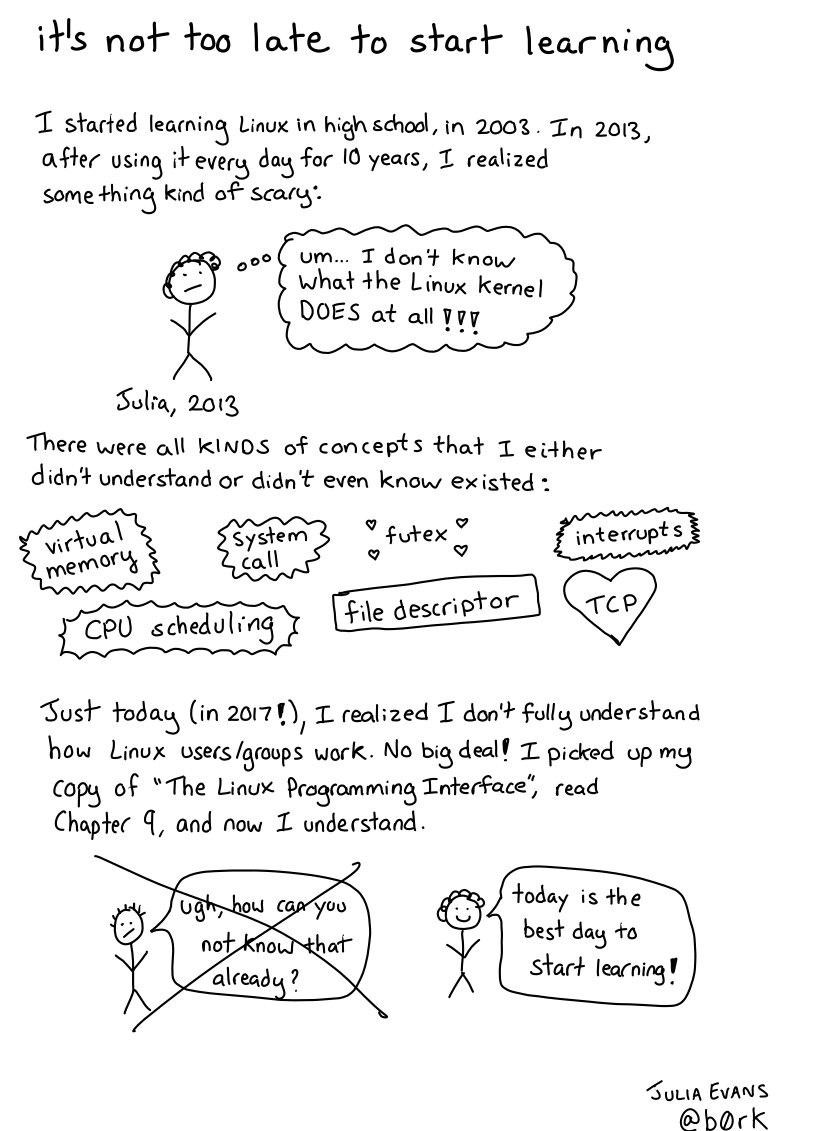 it's not too late to start learning
I started learning Linux in high school, in 2003. In 2013,
after using it every day for 10 years, I realized
something kind of scary:
um... I don't know
what the Linux kernel
DOES at all !!!
Julia, 2013
There were all KINDS of concepts that I either
didn't understand or didn't even know existed:
virtual
memory
system
call
futex
interrupts
CPU scheduling
file descriptor
TCP
Just today (in 2017!), I realized I don't fully understand
how Linux users/groups work. No big deal! I picked up my
copy of "The Linux Programming Interface", read
Chapter 9, and now I understand.
ugh, how can you
not know that
already?
today is the
best day to
start learning!
JULIA EVANS
@b0rk